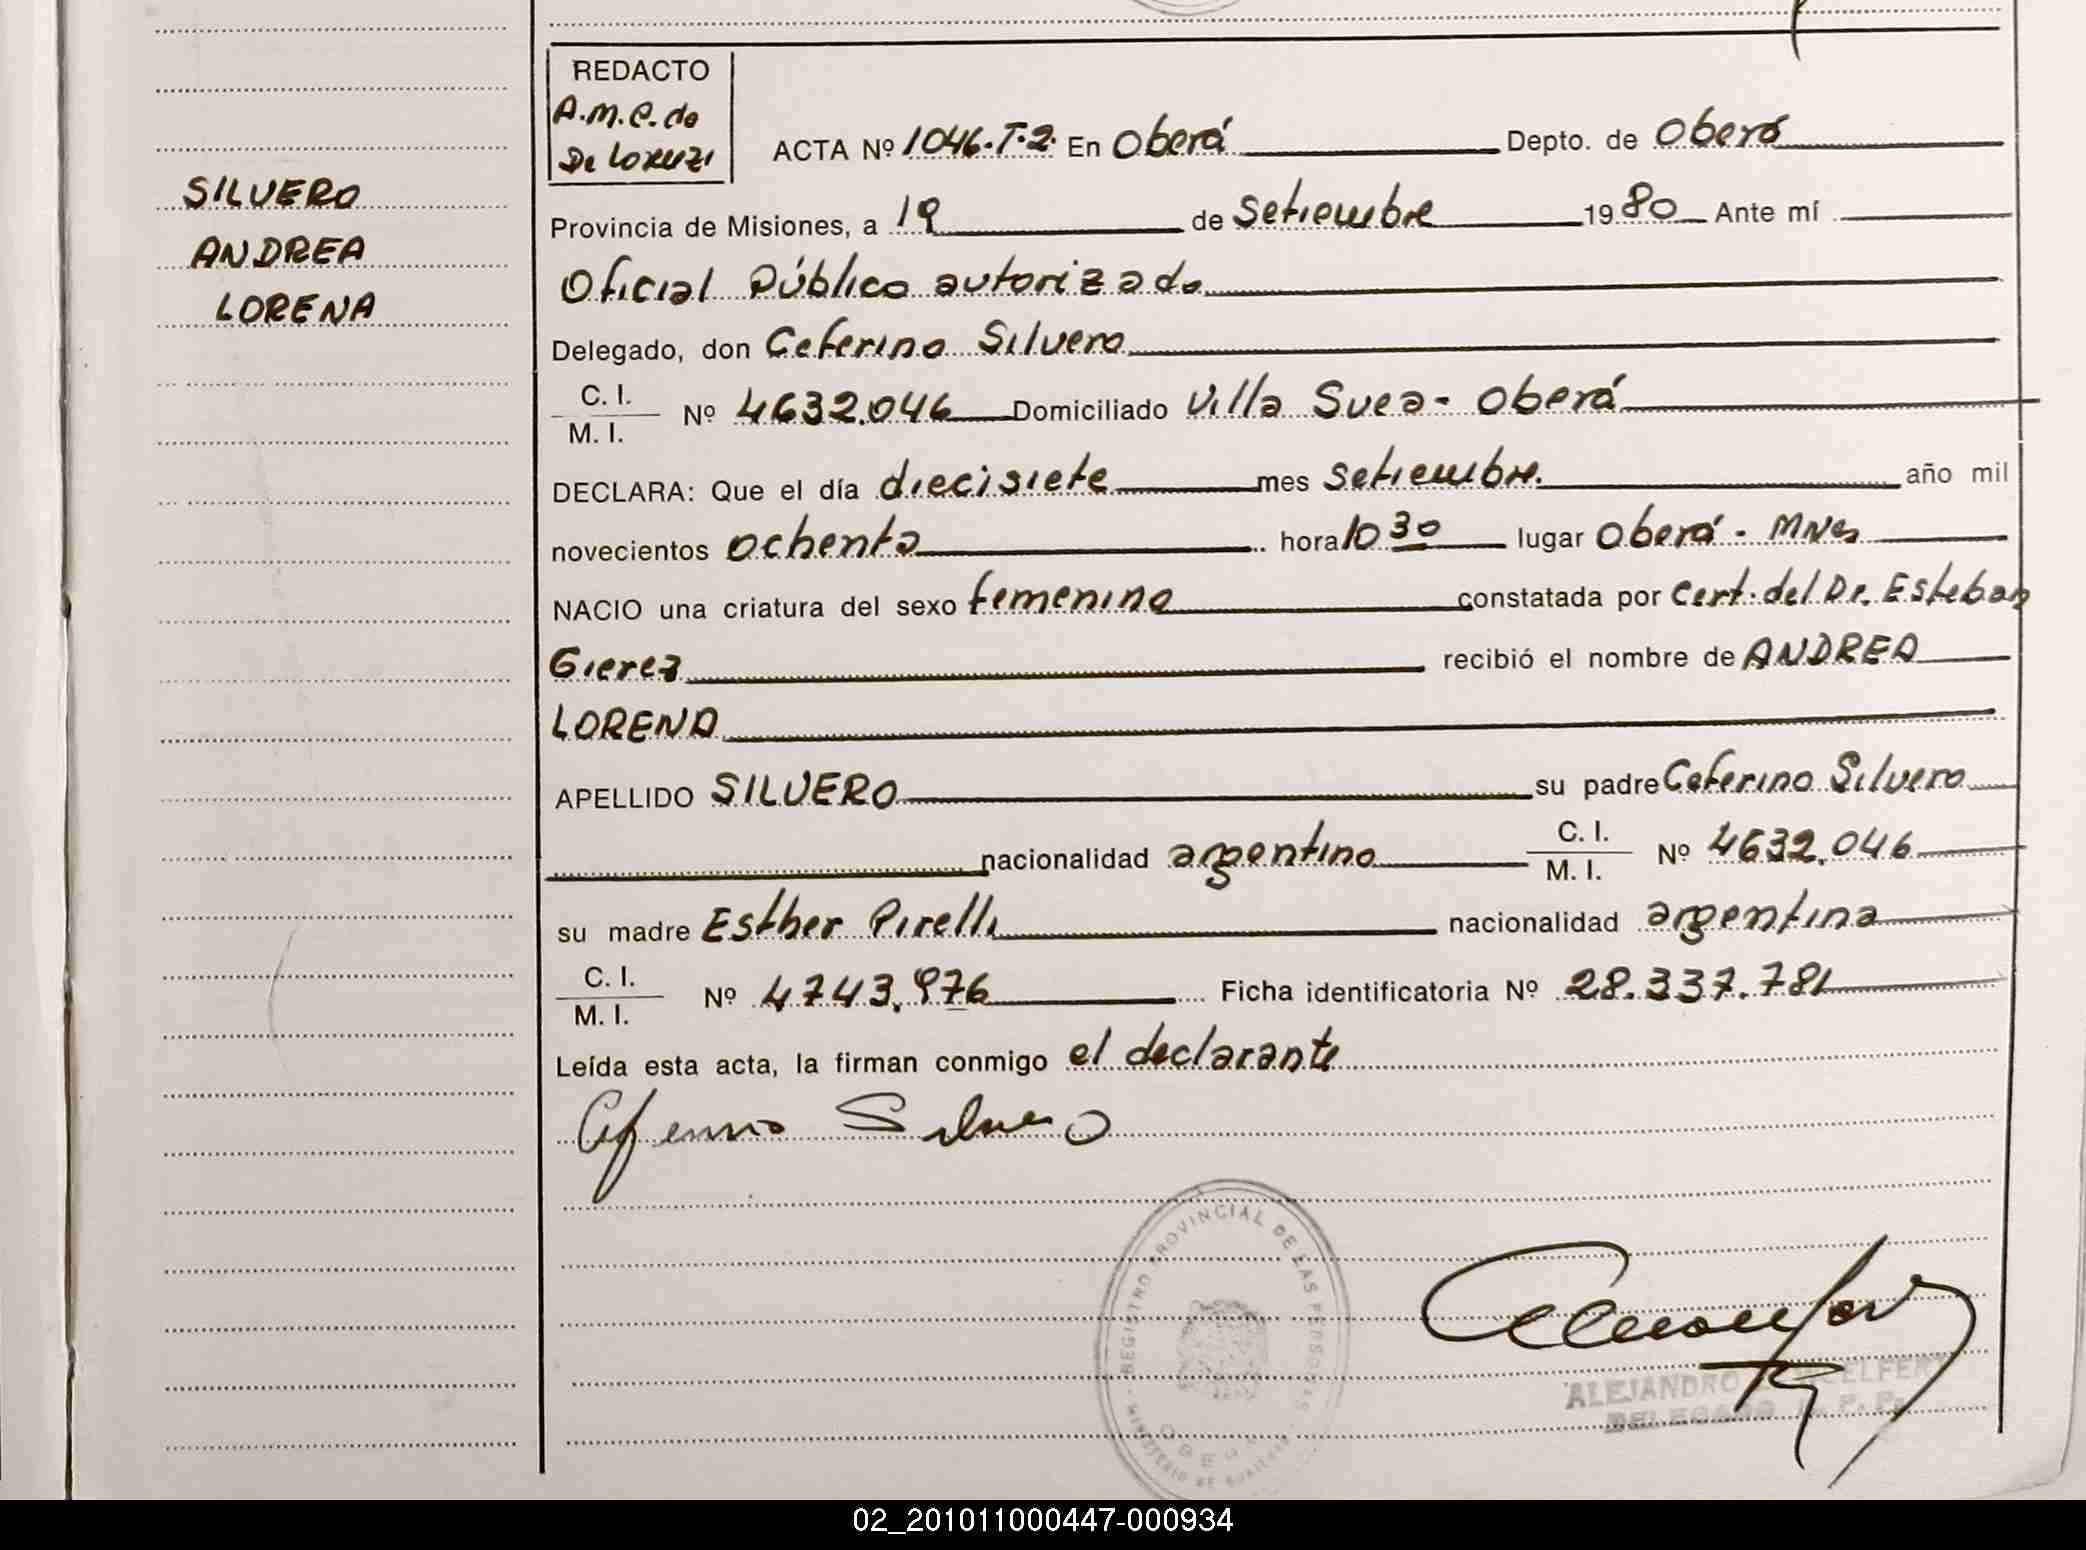 REDACTO
A.M.C. de
De Lorenzi
ACTA Nº 1046.T.2. En Oberá Depto. de Oberá
SILVERO
ANDREA
LORENA
Provincia de Misiones, a 19 de Setiembre 1980 Ante mí
Oficial Público autorizado
Delegado, don Ceferino Silvero
C. I.
M. I.
Nº 4632.046 Domiciliado Villa Svea - Oberá
DECLARA: Que el día diecisiete mes Setiembre. año mil
novecientos ochenta hora 10 30 lugar Oberá - Mnes
NACIO una criatura del sexo femenino constatada por Cert. del Dr. Esteban
Gierez recibió el nombre de ANDREA
LORENA
APELLIDO SILVERO su padre Ceferino Silvero
nacionalidad argentino C. I.
M. I. Nº 4632.046
su madre Esther Pirelli nacionalidad argentina
C. I.
M. I.
Nº 4743.976 Ficha identificatoria Nº 28.337.781
Leída esta acta, la firman conmigo el declarante
Ceferino Silvero
REGISTRO PROVINCIAL DE LAS PERSONAS
MINISTERIO DE GOBIERNO
OBERA
ALEJANDRO
DELEGADO R. P. P.
02_201011000447-000934